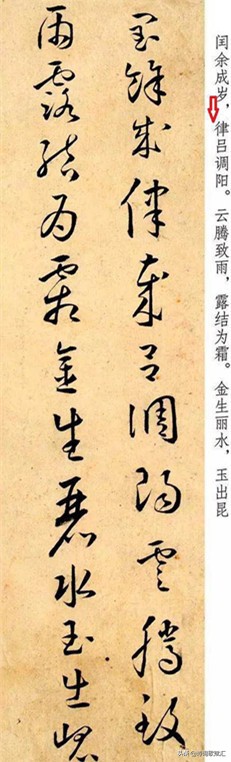 闰余成岁，律吕调阳。云腾致雨，露结为霜。金生丽水，玉出昆
閏餘成律歲呂調陽雲騰致
雨露結為霜金生麗水玉出崐